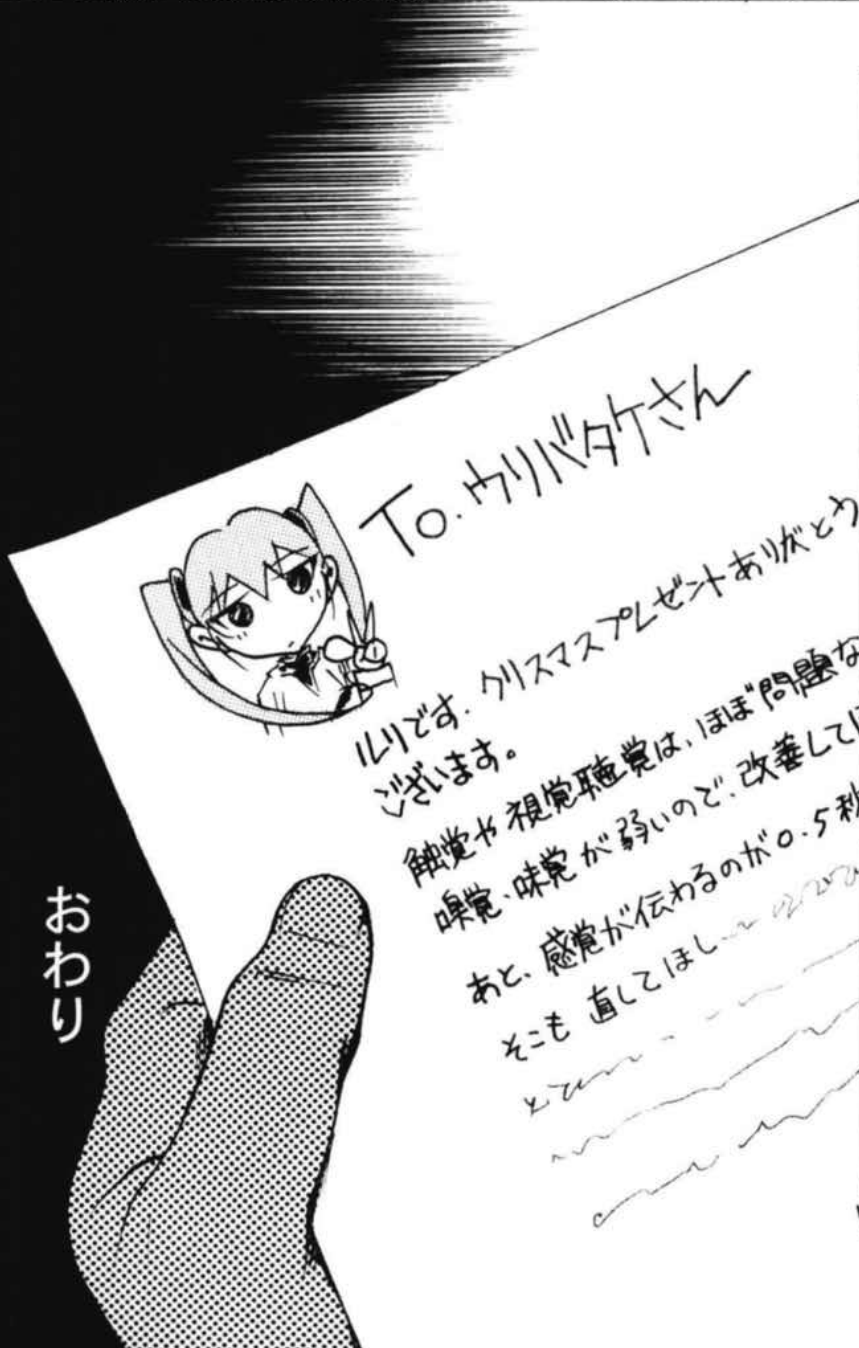 To. ウリバタケさん
ルリです. クリスマスプレゼントありがとう
ございます。
触覚や視覚聴覚は、ほぼ問題な
嗅覚、味覚が弱いので、改善して
あと、感覚が伝わるのが0.5秒
そこも直してほし
おわり